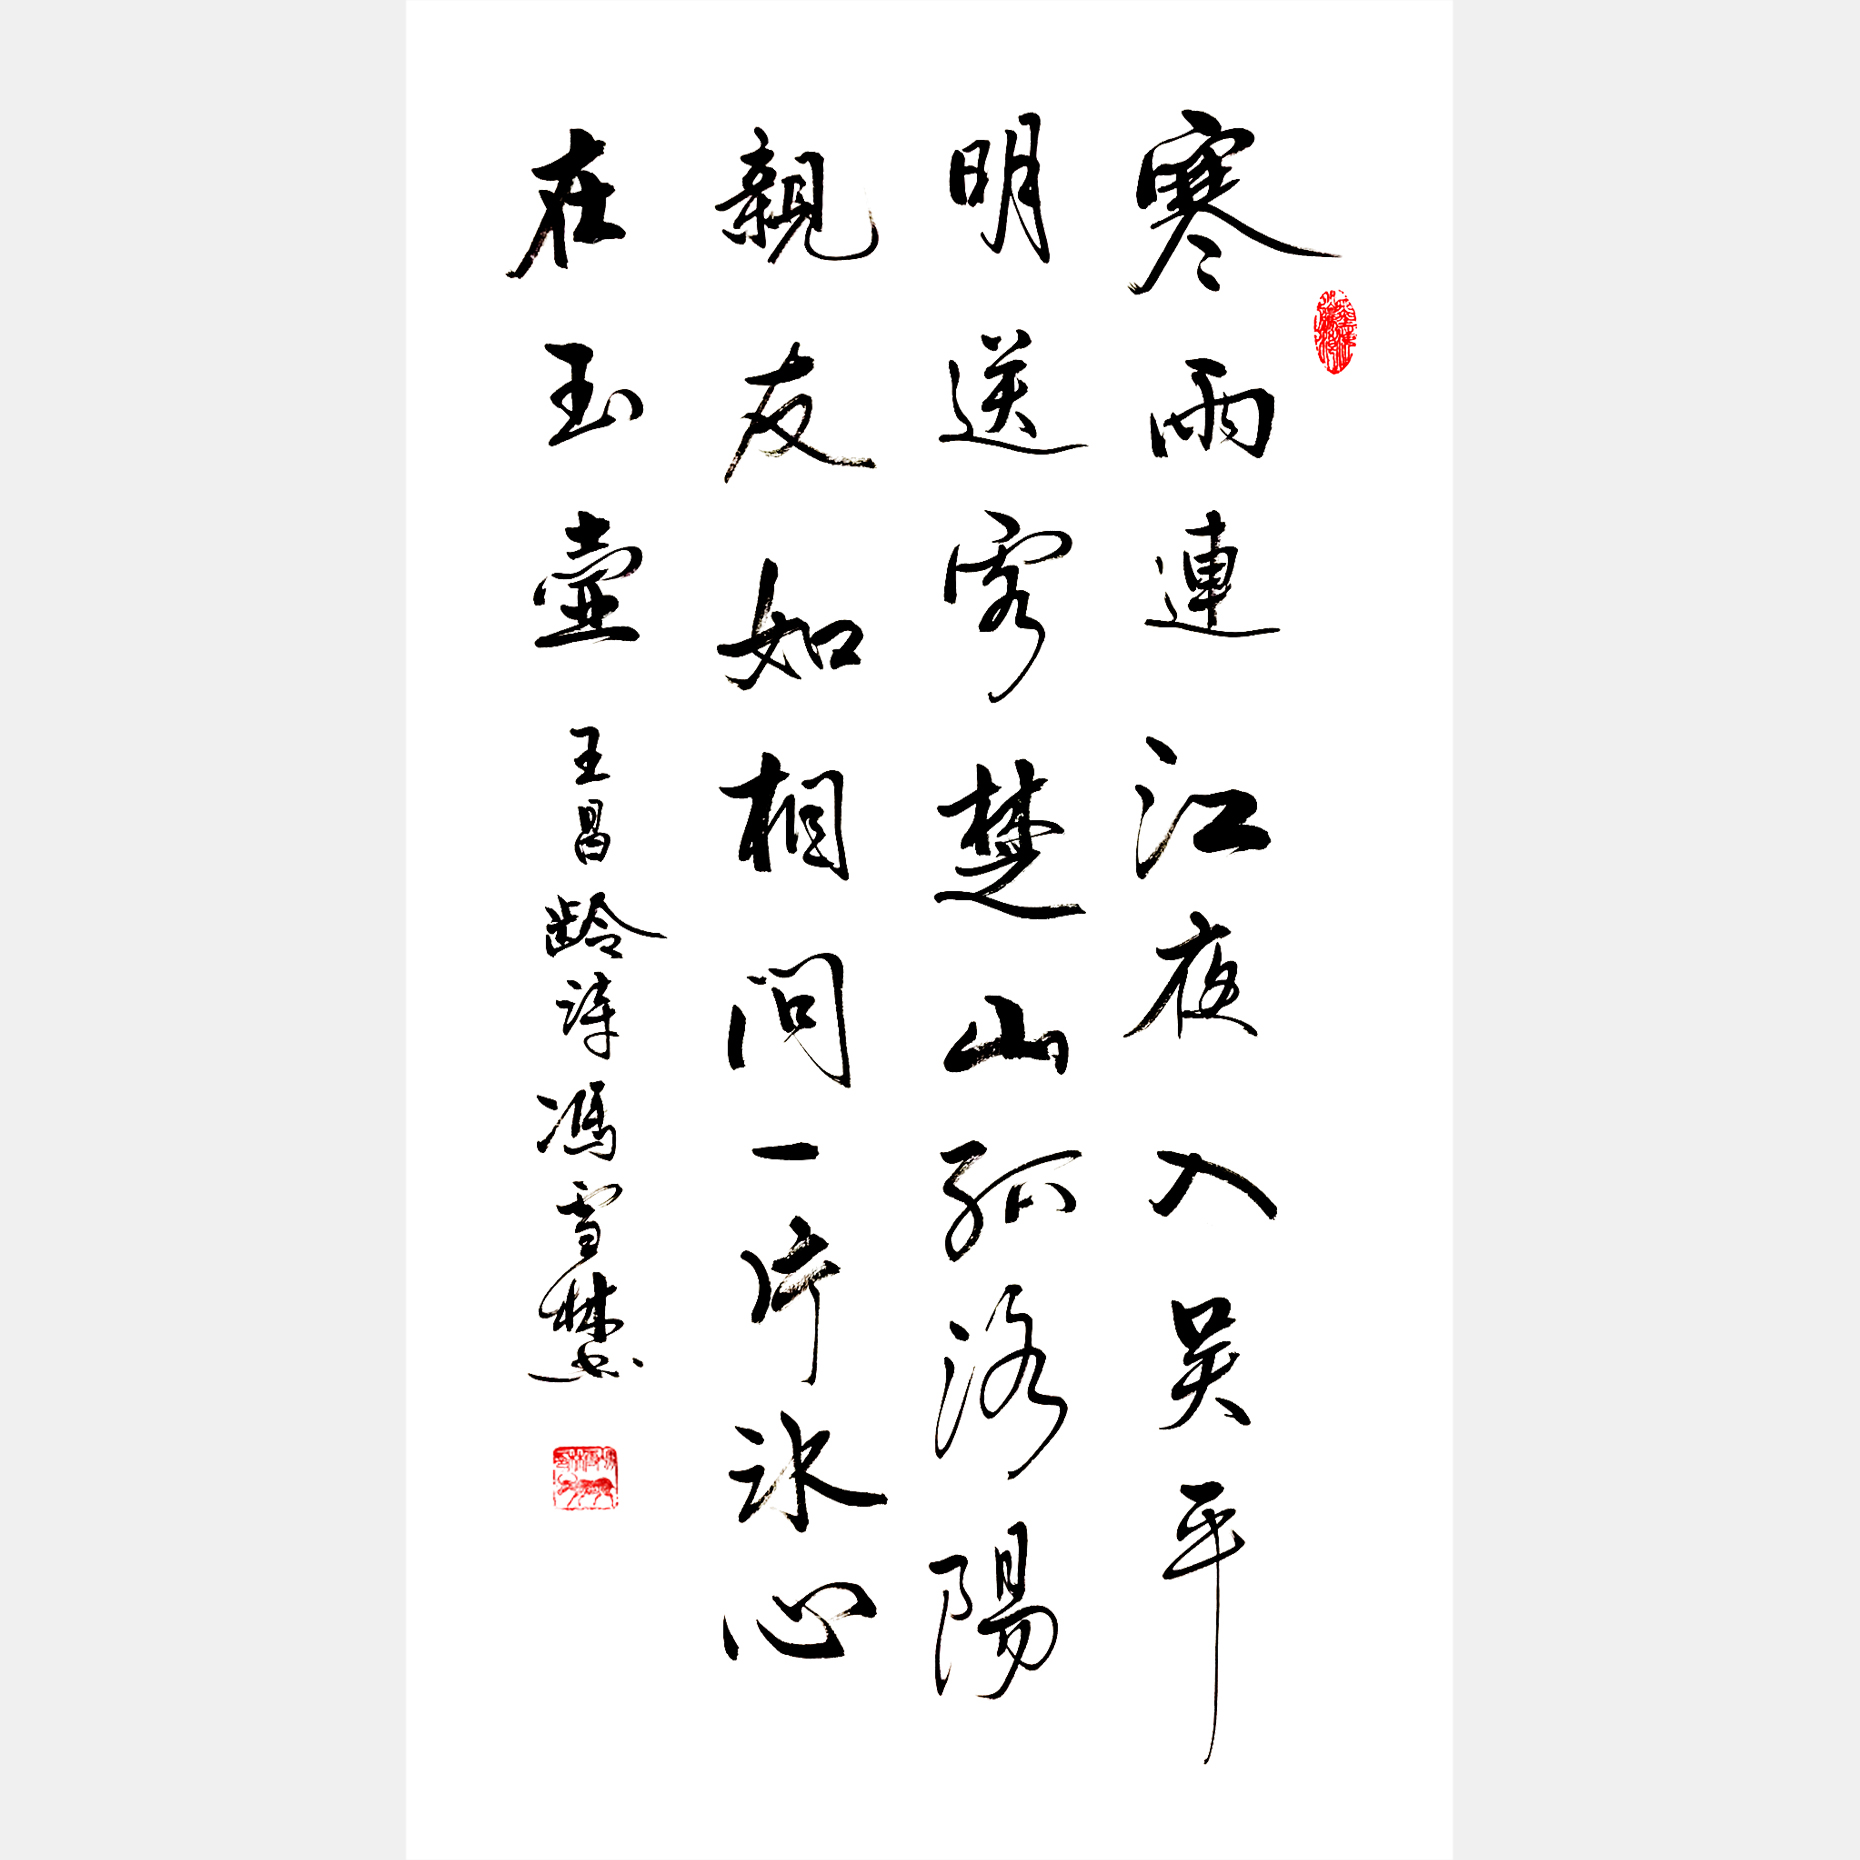 寒雨連江夜入吴平
明送客楚山孤洛陽
親友如相问一片冰心
在玉壺王昌龄诗馮雪林书